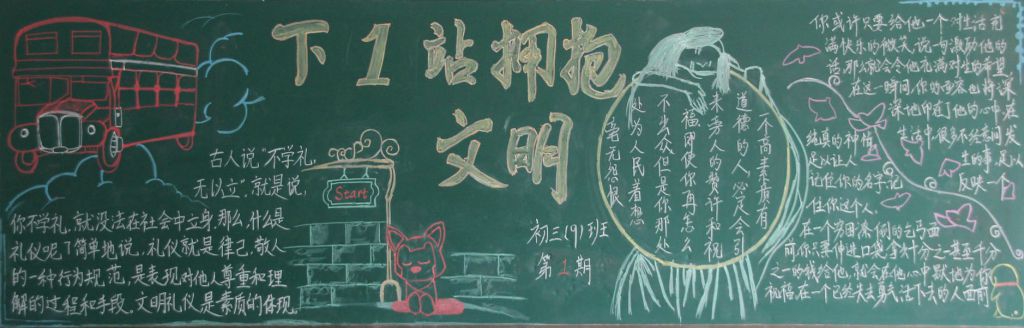 下1站拥抱
文明
古人说“不学礼，
无以立”，就是说，
你不学礼，就没法在社会中立身，那么，什么是
礼仪呢？简单地说，礼仪就是律己，敬人
的一种行为规范，是表现对他人尊重和理
解的过程和手段，文明礼仪是素质的体现。
Start
初三(9)班
第1期
一个高素质有
道德的人，必定会引
来旁人的赞许和祝
福，即使你再怎么
不出众，但是你那处
处为人民着想
著无怨恨
你或许只要给他一个对生活充
满快乐的微笑，说一句激励他的
话，那么就会令他充满对生的希望
在这一瞬间，你的面容也将深
深地印进了他的心中，在
纯真的神情
足以让人
记住你的名字，记
住你这个人。
生活中很多不经意间发
生的事，足以
反映一个
在一个穷困
的乞丐面
前，你
伸进口袋拿
十分之
甚至千分
之一的钱给他，
会在他心中默
为你
祝福，在一个已经失去勇气活下去的人面前